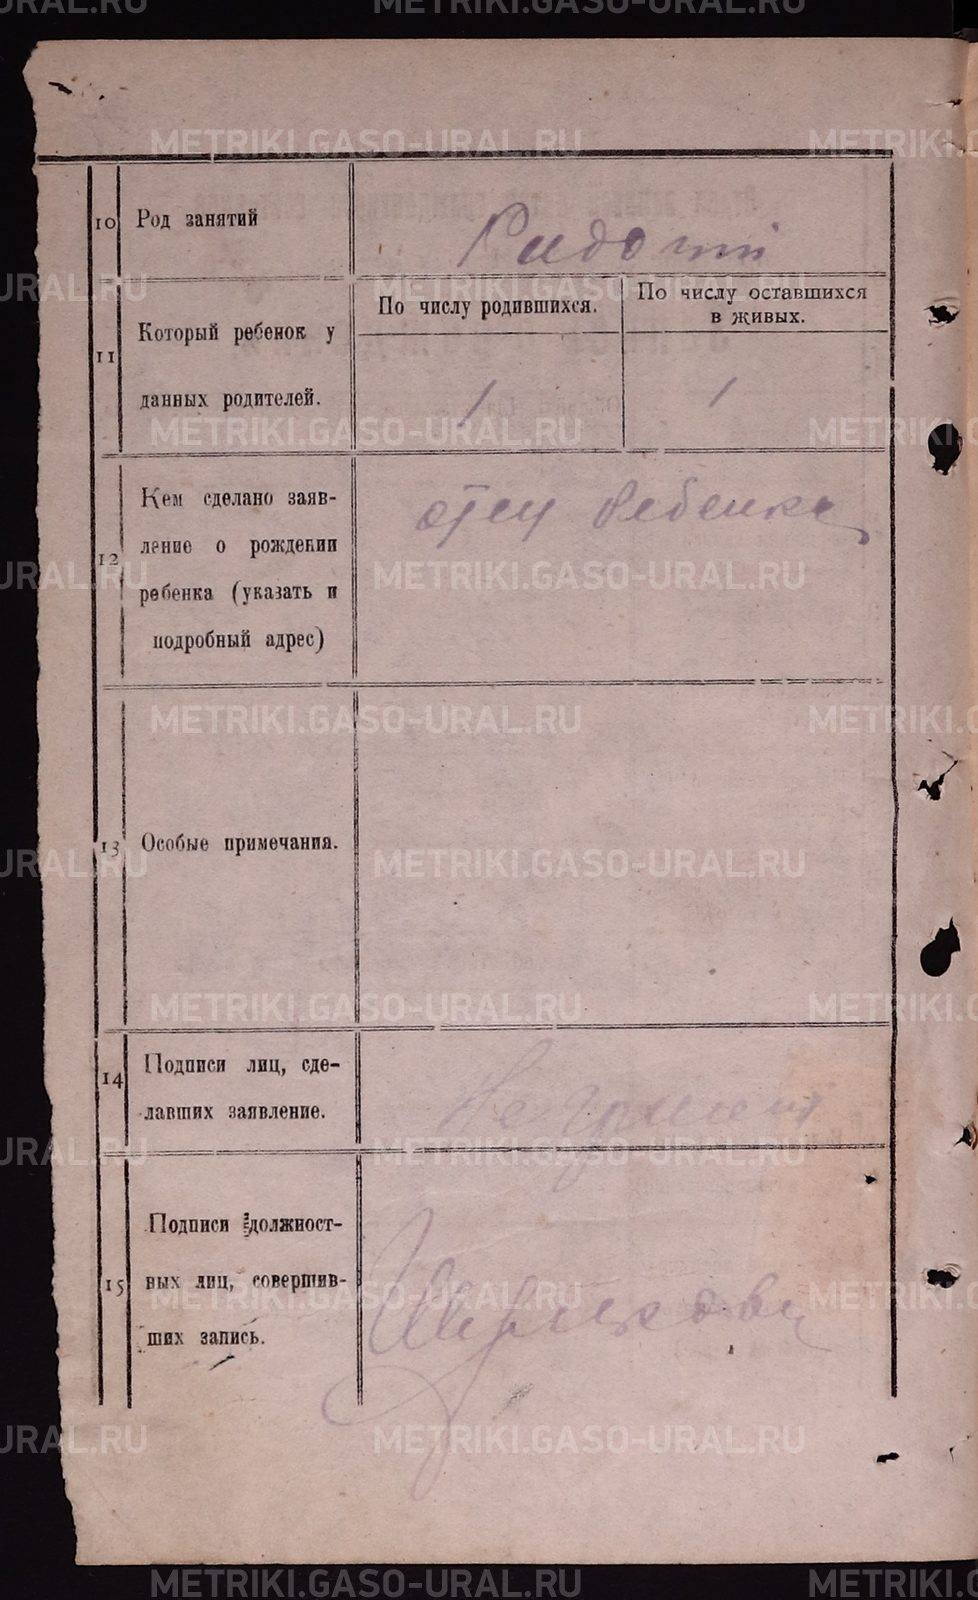 10 Род занятий
Рядо
11 Который ребенок у
данных родителей.
По числу родившихся.
По числу оставшихся
в живых.
1 1
12 Кем сделано заяв-
ление о рождении
ребенка (указать и
подробный адрес)
отец Ребенка
13 Особые примечания.
14 Подписи лиц, сде-
лавших заявление.
Не
15 Подписи должност-
ных лиц, совершив-
ших запись.
METRIKI.GASO-URAL.RU